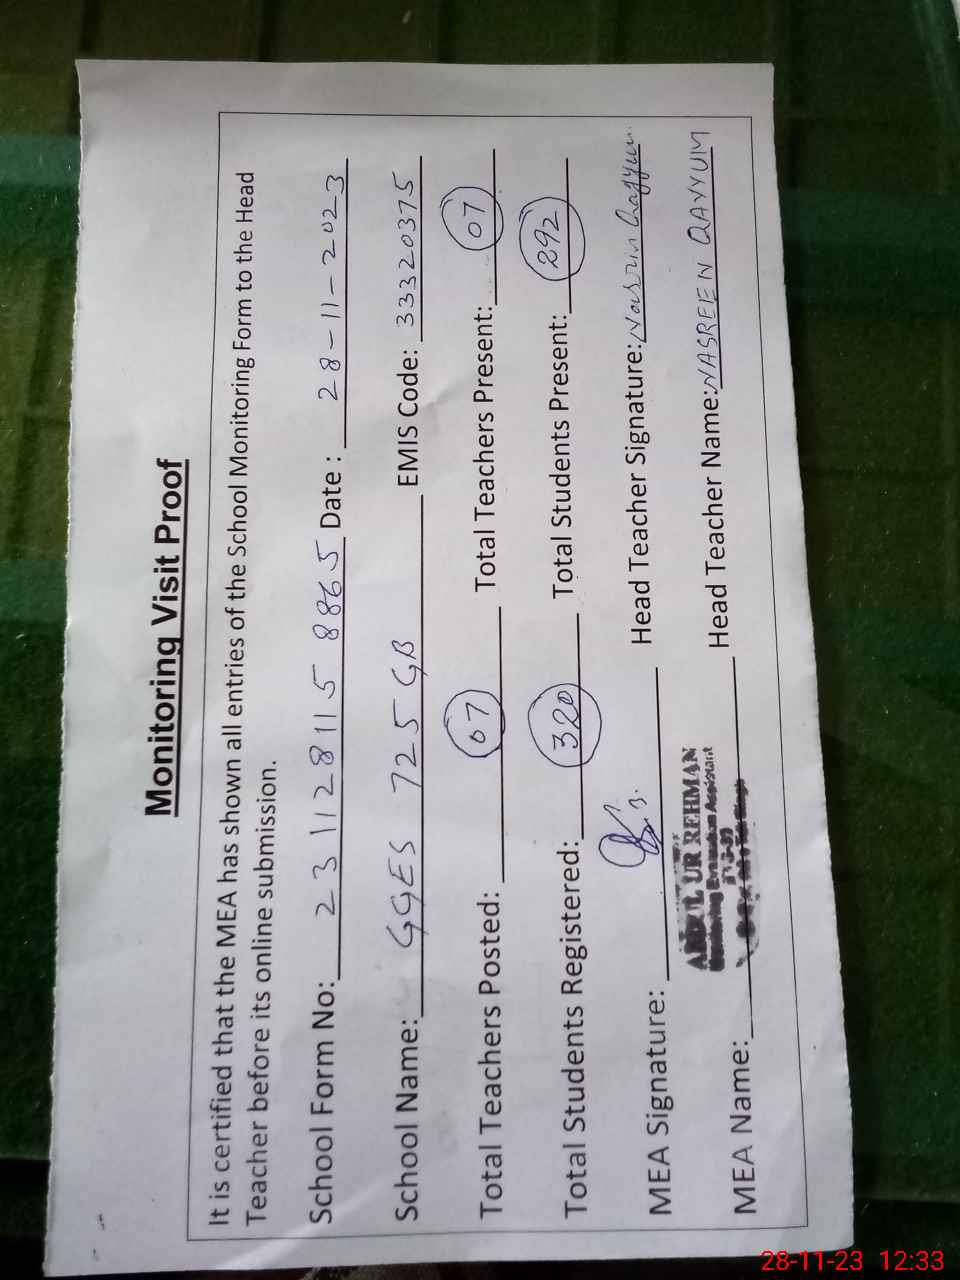 Monitoring Visit Proof
It is certified that the MEA has shown all entries of the School Monitoring Form to the Head
Teacher before its online submission.
School Form No: 23112811 5 8865 Date : 28-11-2023
School Name: GGES 725 GB EMIS Code: 33320375
Total Teachers Posted: 07 Total Teachers Present: 07
Total Students Registered: 320 Total Students Present: 292
MEA Signature: Head Teacher Signature: Nasrin Qayyum
MEA Name: Head Teacher Name: NASREEN QAYYUM
ABDUL UR REHMAN
Monitoring Evaluation Assistant
28-11-23 12:33